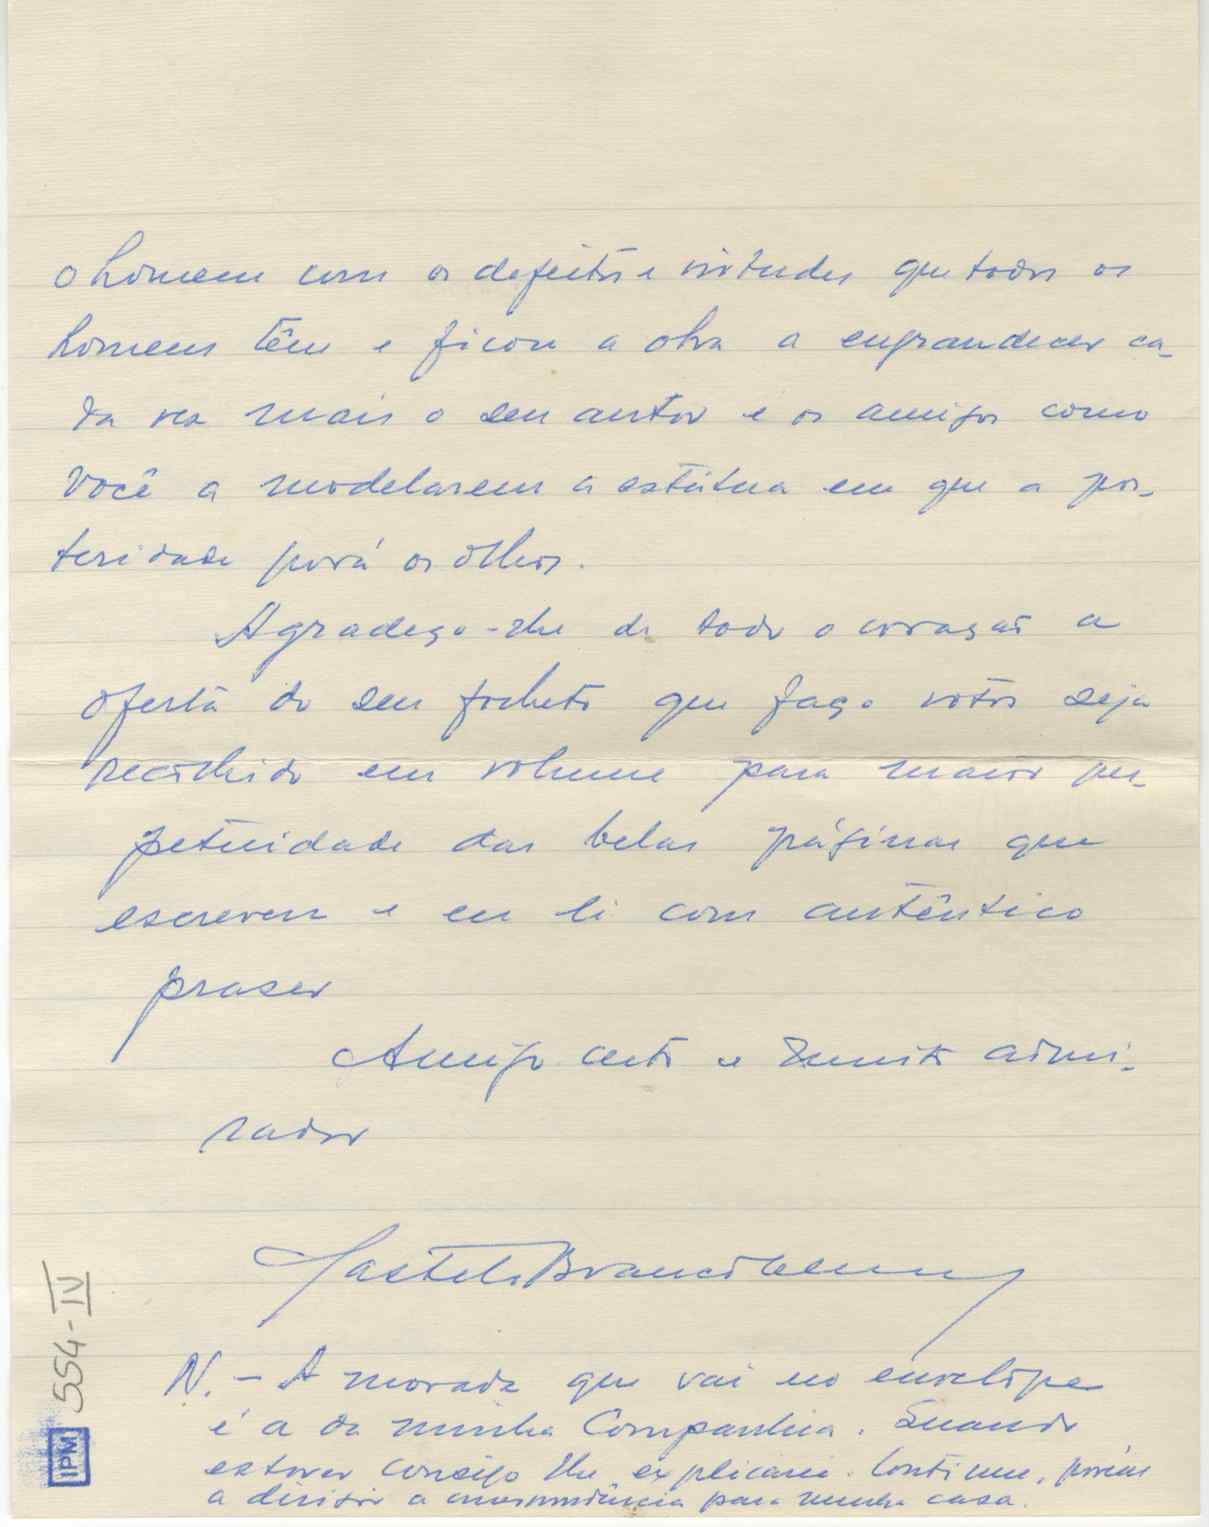 o homem com os defeitos e virtudes que todos os
homens têm e ficou a obra a engrandecer ca-
da vez mais o seu autor e os amigos como
você a modelarem a estátua em que a pos-
teridade porá os olhos.
Agradeço-lhe de todo o coração a
oferta do seu folheto que faço votos seja
recolhido em volume para maior per-
petuidade das belas páginas que
escreveu e eu li com autêntico
praser
Amigo certo e muito admi-
rador
Castelo Branco Chaves
N. - A morada que vai no envelope
é a da minha Companhia. Quando
estiver consigo lhe explicarei. Continue, porém
a dirigir a correspondência para minha casa.
554-IV
IPM